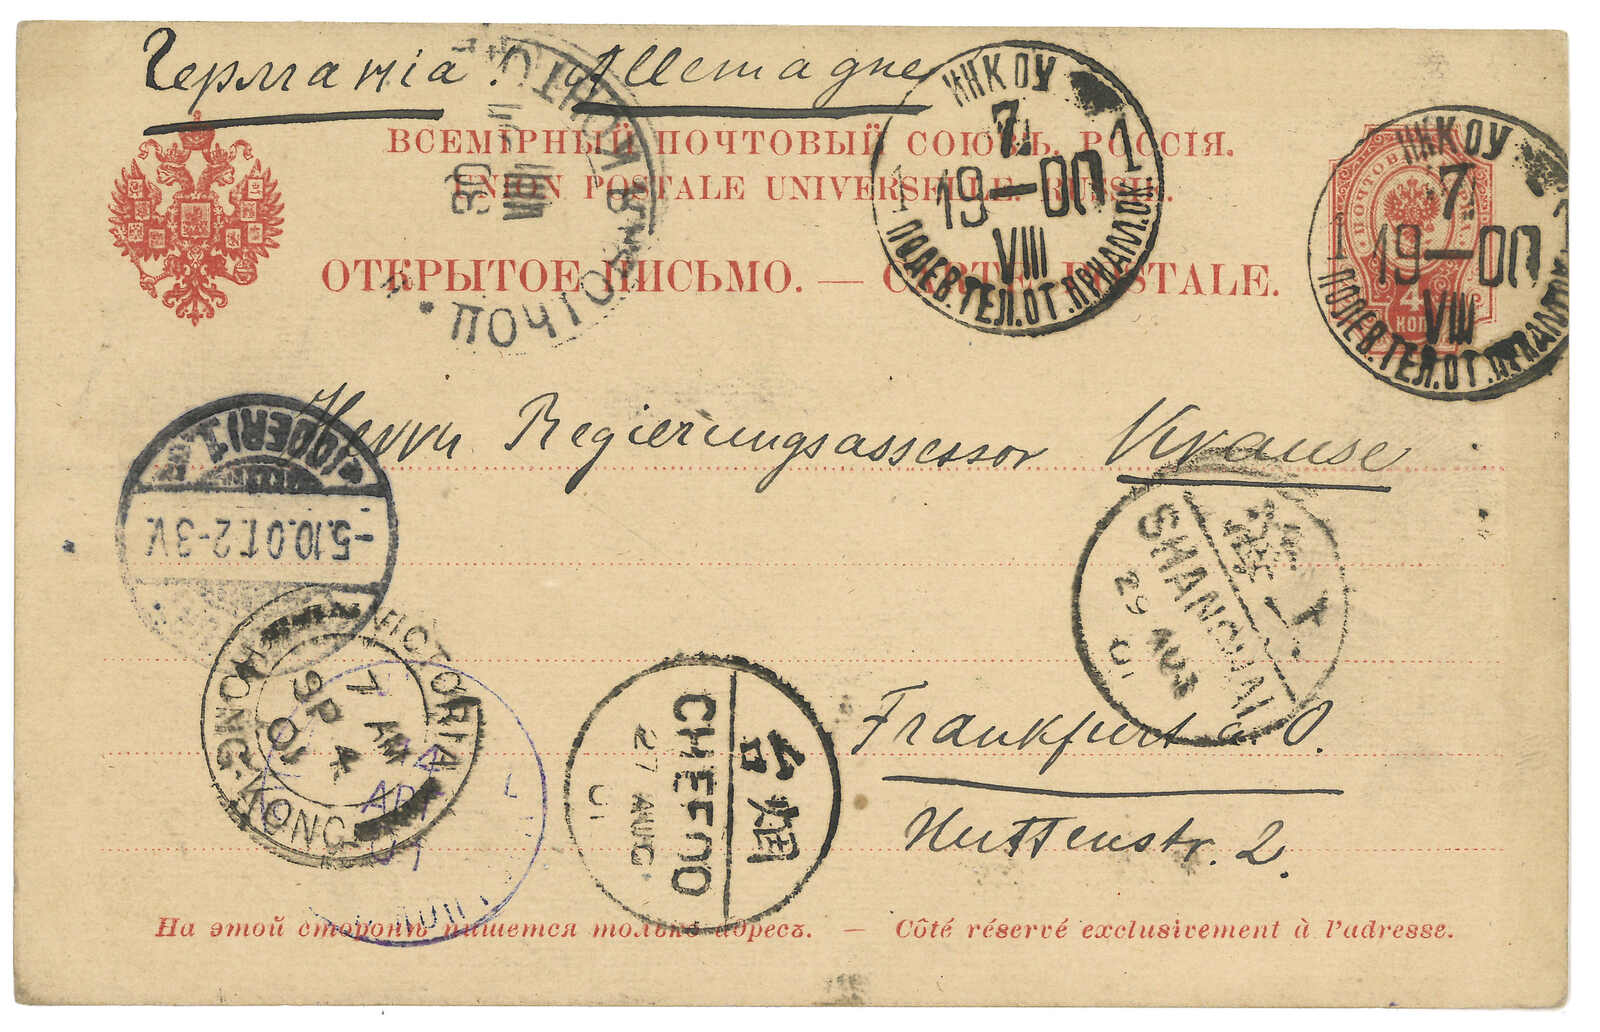 Германія. Allemagne
ВСЕМІРНЫЙ ПОЧТОВЫЙ СОЮЗЪ. РОССІЯ.
UNION POSTALE UNIVERSELLE. RUSSIE.
ОТКРЫТОЕ ПИСЬМО. — CARTE POSTALE.
4 КОП
ИНКОУ
7
19—00
VIII
1 ПОЛЕВ.ТЕЛ.ОТ.ПРИАМ.ОК. 1
ИНКОУ
7
19—00
VIII
1 ПОЛЕВ.ТЕЛ.ОТ.
30
VIII
Herrn Regierungsassessor Krause
(ODER) 1.
-5.10.01.2-3V.
SHANGHAI
29 AUG
01
VICTORIA
7 AM
SP 4
01
HONG-KONG
CHEFOO
27 AUG
01
台烟
Frankfurt a. O.
Huttenstr. 2.
На этой сторонѣ пишется только адресъ. — Côté réservé exclusivement à l'adresse.